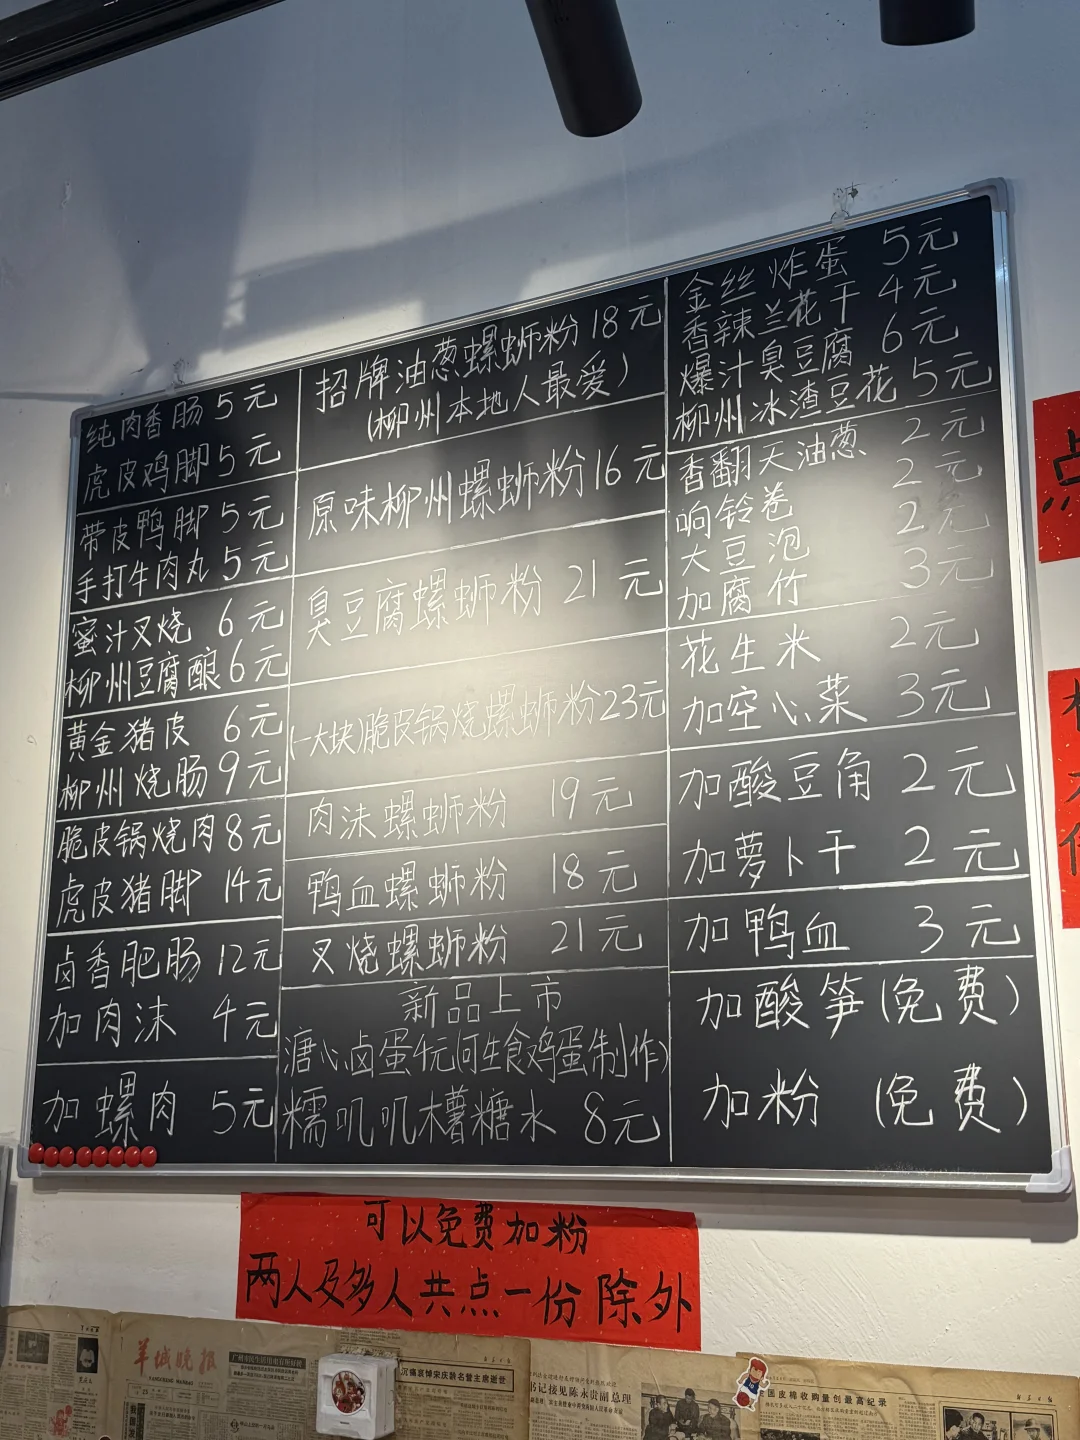 纯肉香肠 5元
虎皮鸡脚 5元
带皮鸭脚 5元
手打牛肉丸 5元
蜜汁叉烧 6元
柳州豆腐酿 6元
黄金猪皮 6元
柳州烧肠 9元
脆皮锅烧肉 8元
虎皮猪脚 14元
卤香肥肠 12元
加肉沫 4元
加螺肉 5元
招牌油葱螺蛳粉 18元
(柳州本地人最爱)
原味柳州螺蛳粉 16元
臭豆腐螺蛳粉 21元
(一大块)脆皮锅烧螺蛳粉 23元
肉沫螺蛳粉 19元
鸭血螺蛳粉 18元
叉烧螺蛳粉 21元
新品上市
溏心卤蛋4元(可生食鸡蛋制作)
糯叽叽槽糖水 8元
金丝炸蛋 5元
香辣兰花干 4元
爆汁臭豆腐 6元
柳州冰渣豆花 5元
香翻天油葱 2元
响铃卷 2元
大豆泡 2元
加腐竹 3元
花生米 2元
加空心菜 3元
加酸豆角 2元
加萝卜干 2元
加鸭血 3元
加酸笋(免费)
加粉(免费)
可以免费加粉
两人及多人共点一份除外
点
羊城晚报
沉痛哀悼宋庆龄名誉主席逝世
书记接见陈永贵副总理
皮棉收购量创最高纪录